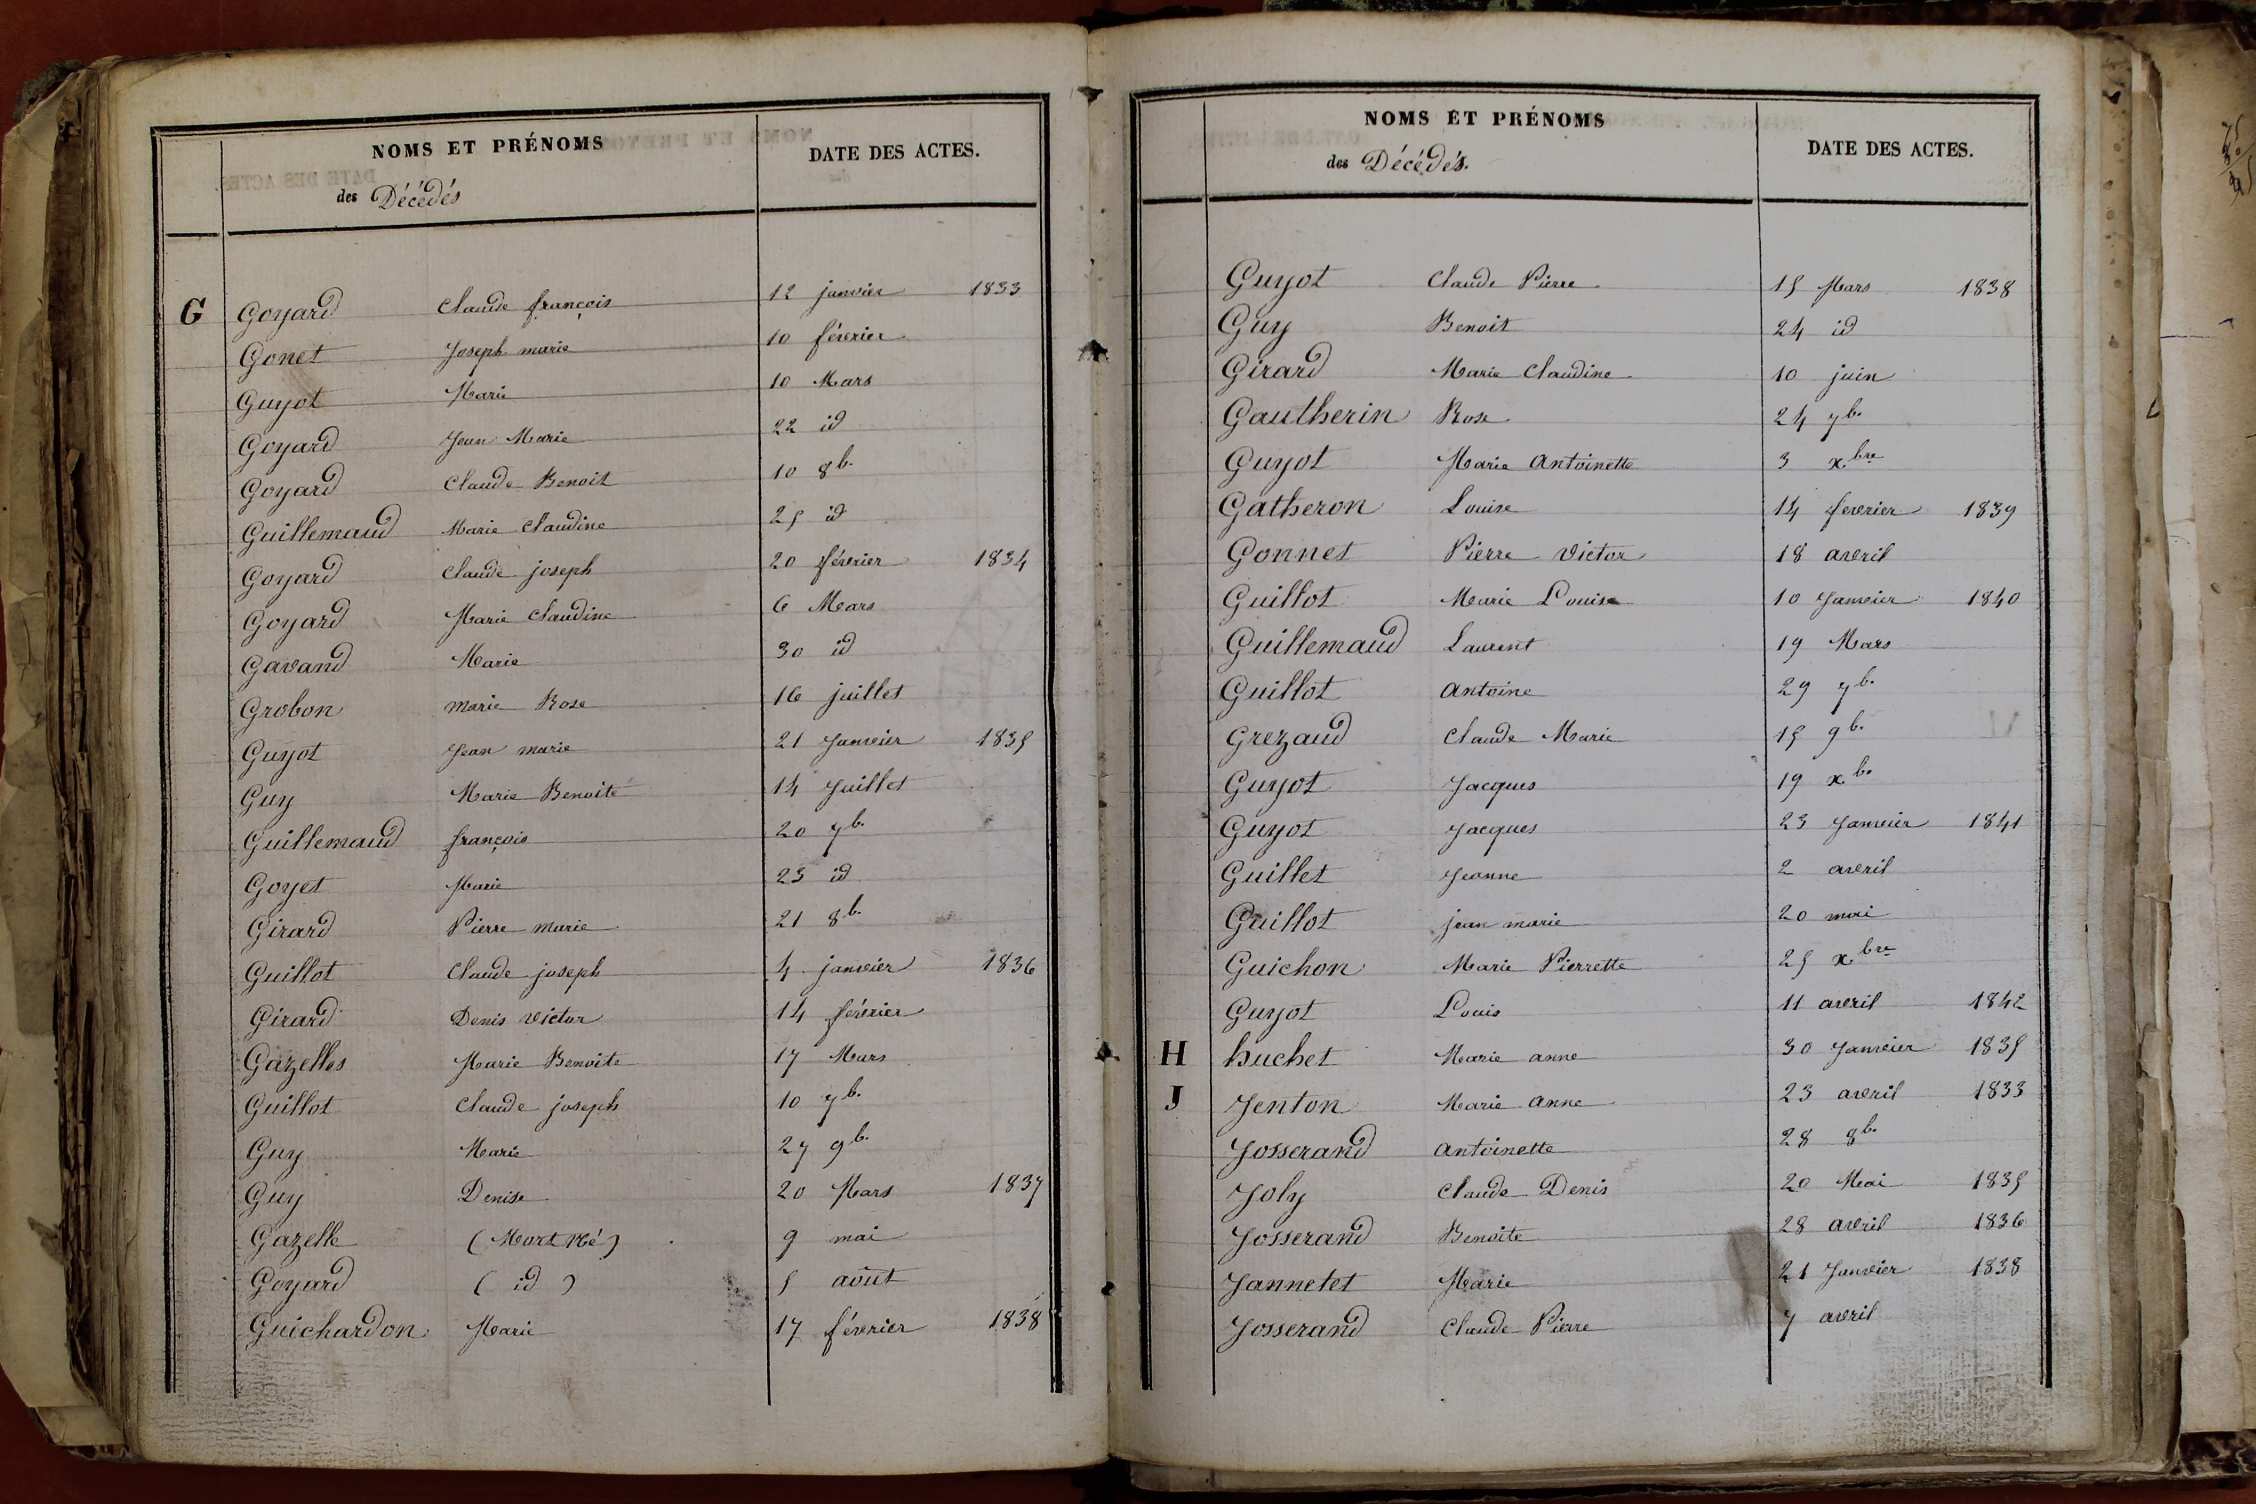 NOMS ET PRÉNOMS
DATE DES ACTES.
des Décédés
G Goyard Claude françois 12 janvier 1833
Gonet Joseph marie 10 février
Guyot Marie 10 Mars
Goyard Jean Marie 22 id
Goyard Claude Benoit 10 8b.
Guillemaud Marie Claudine 25 id
Goyard Claude joseph 20 février 1834
Goyard Marie Claudine 6 Mars
Gavand Marie 30 id
Grobon Marie Rose 16 juillet
Guyot Jean marie 21 Janvier 1835
Guy Marie Benoite 14 Juillet
Guillemaud françois 20 7b.
Goyet Marie 23 id
Girard Pierre Marie 21 8b.
Guillot Claude joseph 4 janvier 1836
Girard Denis Victor 14 février
Gazelles Marie Benoite 17 Mars
Guillot Claude joseph 10 7b.
Guy Marie 27 9b.
Guy Denise 20 Mars 1837
Gazelle (Mort Né) 9 mai
Goyard ( id ) 5 août
Guichardon Marie 17 février 1838
NOMS ET PRÉNOMS
DATE DES ACTES.
des Décédés.
Guyot Claude Pierre 15 Mars 1838
Guy Benoit 24 id
Girard Marie Claudine 10 juin
Gautherin Rose 24 7b.
Guyot Marie Antoinette 3 xbre
Gatheron Louise 14 fevrier 1839
Gonnet Pierre Victor 18 avril
Guillot Marie Louise 10 Janvier 1840
Guillemaud Laurent 19 Mars
Guillot Antoine 29 7b.
Grezaud Claude Marie 15 9b.
Guyot Jacques 19 xb.
Guyot Jacques 23 Janvier 1841
Guillet Jeanne 2 avril
Guillot jean marie 20 mai
Guichon Marie Pierrette 25 xbre
Guyot Louis 11 avril 1842
H huchet Marie anne 30 Janvier 1835
J Jenton Marie anne 23 avril 1833
Josserand Antoinette 28 8b.
Joly Claude Denis 20 Mai 1835
Josserand Benoite 28 avril 1836
Jannetet Marie 21 Janvier 1838
Josserand Claude Pierre 7 avril